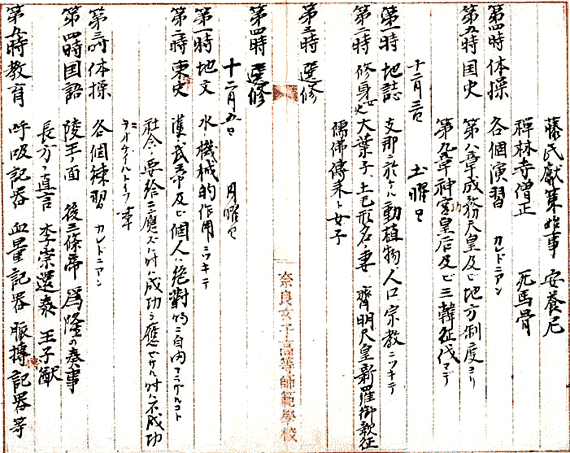 藤氏献策始事 安養尼
禅林寺僧正 死馬骨
第四時 体操 各個演習 カレドニアン
第五時 国史 第八章成務天皇及ビ地方制度ヨリ
第九章神功皇后及ビ三韓征伐マデ
十二月三日 土曜日
第一時 地誌 支那ニ於ケル動植物、人口宗教ニツキテ
第二時 修身 大葉子、土己形名ノ妻 齊明天皇新羅御親征
儒佛傳来ト女子
第三時 選修
第四時 選修
十二月五日 月曜日
第一時 地文 水ノ機械的作用ニツキテ
第二時 東史 漢ノ武帝及ビ個人ハ絶對的ニ自由
社会ノ要給ニ應ズレバ成功
第三時 体操 各個練習 カレドニアン
第四時 国語 陵王ノ面 後三條帝 為隆の奏事
長方ノ直言 李崇還奏 王子猷
教育 呼吸記器 血量記器 脈搏記器等
奈良女子高等師範學校